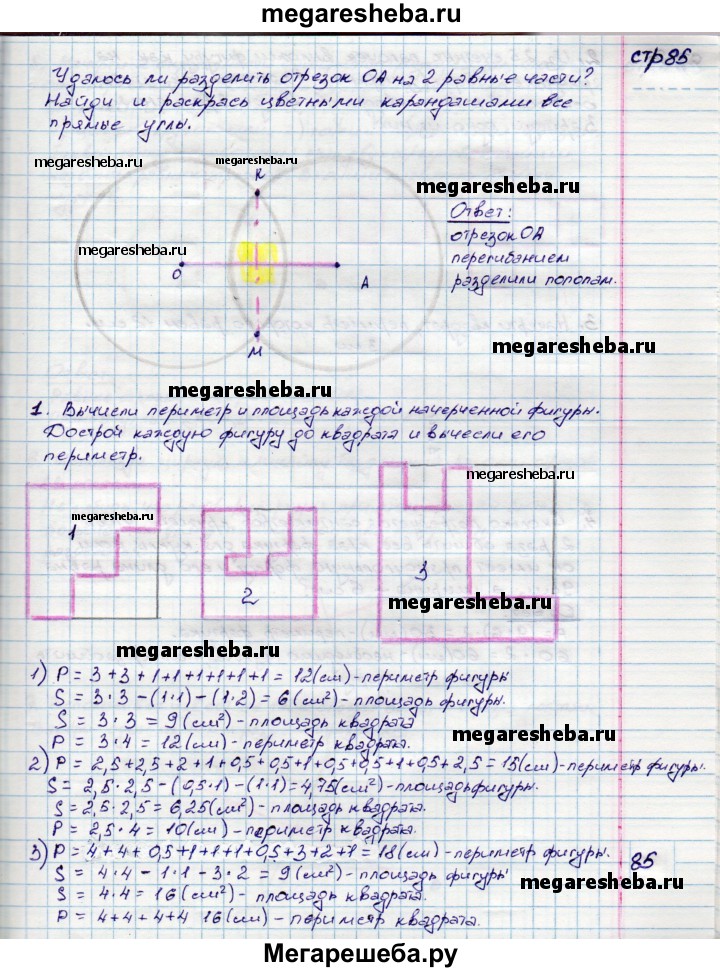 megaresheba.ru
стр 85
Удалось ли разделить отрезок ОА на 2 равные части?
Найди и раскрась цветными карандашами все
прямые углы.
megaresheba.ru
megaresheba.ru
К
megaresheba.ru
Ответ:
отрезок ОА
перегибанием
разделили пополам.
megaresheba.ru
О
А
М
megaresheba.ru
megaresheba.ru
1. Вычисли периметр и площадь каждой начерченной фигуры.
Дострой каждую фигуру до квадрата и вычесли его
периметр.
megaresheba.ru
megaresheba.ru
1
2
3
megaresheba.ru
megaresheba.ru
1) P = 3+3+1+1+1+1+1+1 = 12(см) - периметр фигуры
S = 3·3 - (1·1) - (1·2) = 6(см²) - площадь фигуры.
S = 3·3 = 9(см²) - площадь квадрата
P = 3·4 = 12(см) - периметр квадрата.
megaresheba.ru
2) P = 2,5+2,5+2+1+0,5+0,5+1+0,5+0,5+1+0,5+2,5 = 15(см) - периметр фигуры.
S = 2,5·2,5 - (0,5·1) - (1·1) = 4,75(см²) - площадь фигуры.
S = 2,5·2,5 = 6,25(см²) - площадь квадрата.
P = 2,5·4 = 10(см) - периметр квадрата.
megaresheba.ru
3) P = 4+4+0,5+1+1+1+0,5+3+2+1 = 18(см) - периметр фигуры.
S = 4·4 - 1·1 - 3·2 = 9(см²) - площадь фигуры
S = 4·4 = 16(см²) - площадь квадрата.
P = 4+4+4+4 16(см) - периметр квадрата.
85
megaresheba.ru
Мегарешеба.ру